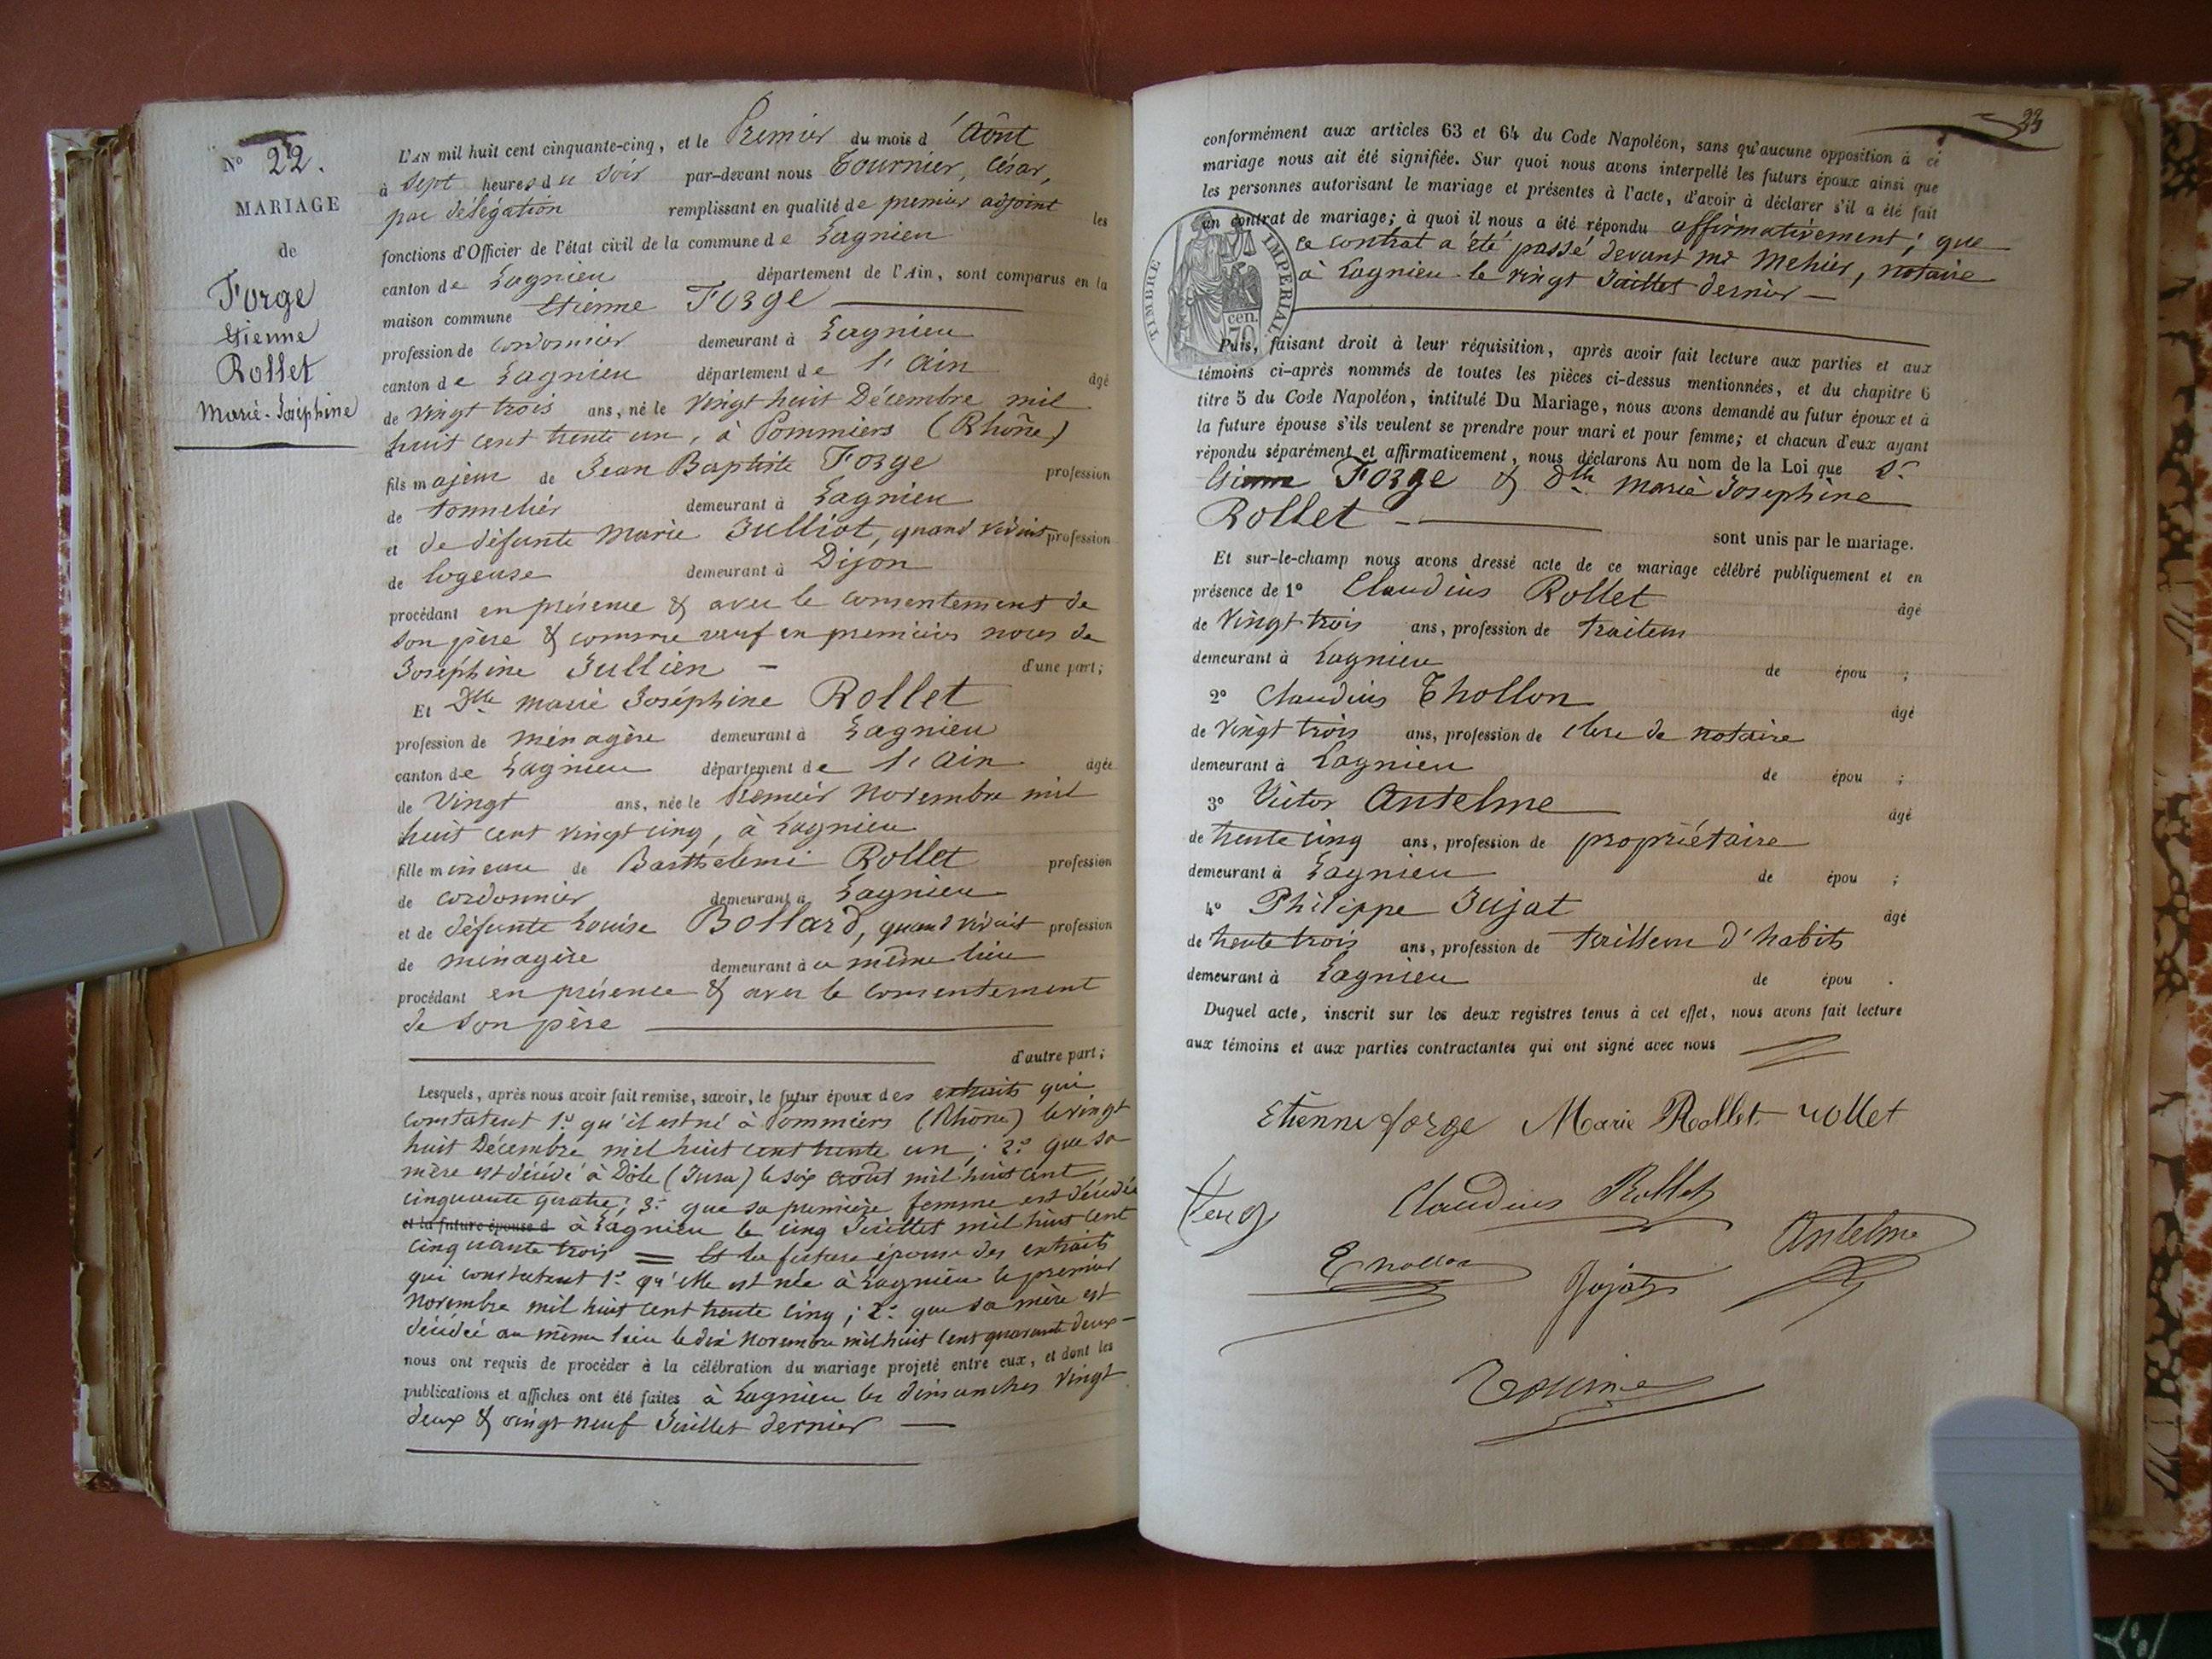 N° 22.
MARIAGE
de
Forge
Etienne
Rollet
Marie-Joséphine
L'AN mil huit cent cinquante-cinq, et le Premier du mois d'Août
à Sept heures du Soir par-devant nous Tournier, César,
par délégation remplissant en qualité de premier adjoint les
fonctions d'Officier de l'état civil de la commune de Lagnieu
canton de Lagnieu département de l'Ain, sont comparus en la
maison commune Etienne Forge
profession de cordonnier demeurant à Lagnieu
canton de Lagnieu département de l'Ain âgé
de vingt trois ans, né le vingt huit Décembre mil
huit cent trente un, à Pommiers (Rhône)
fils majeur de Jean Baptiste Forge profession
de tonnelier demeurant à Lagnieu
et de défunte Marie Julliot, quand vivait profession
de logeuse demeurant à Dijon
procédant en présence & avec le consentement de
son père & comme veuf en premières noces de
Joséphine Jullien d'une part;
Et Dlle Marie Joséphine Rollet
profession de ménagère demeurant à Lagnieu
canton de Lagnieu département de l'Ain âgée
de Vingt ans, née le Premier Novembre mil
huit cent vingt cinq, à Lagnieu
fille mineure de Barthélemi Rollet profession
de cordonnier demeurant à Lagnieu
et de défunte Louise Bollard, quand vivait profession
de ménagère demeurant à ce même lieu
procédant en présence & avec le consentement
de son père
d'autre part;
Lesquels, après nous avoir fait remise, savoir, le futur époux des extraits qui
constatent 1° qu'il est né à Pommiers (Rhône) le vingt
huit Décembre mil huit cent trente un; 2° que sa
mère est décédé à Dôle (Jura) le six août mil huit cent
cinquante quatre; 3° que sa première femme est décédée
et la future épouse d à Lagnieu le cinq Juillet mil huit cent
cinquante trois = Et la future épouse des extraits
qui constatent 1° qu'elle est née à Lagnieu le premier
Novembre mil huit cent trente cinq; 2° que sa mère est
décédée au même lieu le dix Novembre mil huit cent quarante deux
nous ont requis de procéder à la célébration du mariage projeté entre eux, et dont les
publications et affiches ont été faites à Lagnieu les dimanches vingt
deux & vingt neuf Juillet dernier
23
conformément aux articles 63 et 64 du Code Napoléon, sans qu'aucune opposition à ce
mariage nous ait été signifiée. Sur quoi nous avons interpellé les futurs époux ainsi que
les personnes autorisant le mariage et présentes à l'acte, d'avoir à déclarer s'il a été fait
un contrat de mariage; à quoi il nous a été répondu affirmativement; que
ce contrat a été passé devant me Mehier, notaire
à Lagnieu le vingt Juillet dernier
TIMBRE IMPÉRIAL
70 cen.
Puis, faisant droit à leur réquisition, après avoir fait lecture aux parties et aux
témoins ci-après nommés de toutes les pièces ci-dessus mentionnées, et du chapitre 6
titre 5 du Code Napoléon, intitulé Du Mariage, nous avons demandé au futur époux et à
la future épouse s'ils veulent se prendre pour mari et pour femme; et chacun d'eux ayant
répondu séparément et affirmativement, nous déclarons Au nom de la Loi que Sr
Etienne Forge & Dlle Marie Josephine
Rollet
sont unis par le mariage.
Et sur-le-champ nous avons dressé acte de ce mariage célébré publiquement et en
présence de 1° Claudius Rollet âgé
de Vingt trois ans, profession de traiteur
demeurant à Lagnieu de épou ;
2° Claudius Thollon âgé
de Vingt trois ans, profession de clerc de notaire
demeurant à Lagnieu de épou ;
3° Victor Antelme âgé
de trente cinq ans, profession de propriétaire
demeurant à Lagnieu de épou ;
4° Philippe Jujat âgé
de trente trois ans, profession de tailleur d'habits
demeurant à Lagnieu de épou .
Duquel acte, inscrit sur les deux registres tenus à cet effet, nous avons fait lecture
aux témoins et aux parties contractantes qui ont signé avec nous
Etienne forge Marie Rollet rollet
Claudius Rollet
Antelme
Thollon Jujat
Tournier